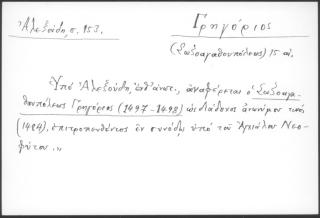 Ἀλεξούδη, σ. 153.
Γρηγόριος
(Σωζοαγαθουπόλεως) 15 αἰ.
Ὑπὸ Ἀλεξούδη, ἀναφέρεται ὁ Σωζοαγα-
θουπόλεως Γρηγόριος (1497-1498) ὡς διάδοχος ἀνωνύμου τινός
(1484), ἐπιτροπευθέντος ἐν συνόδῳ ὑπὸ τοῦ Ἀγχιάλου Νεο-
φύτου."